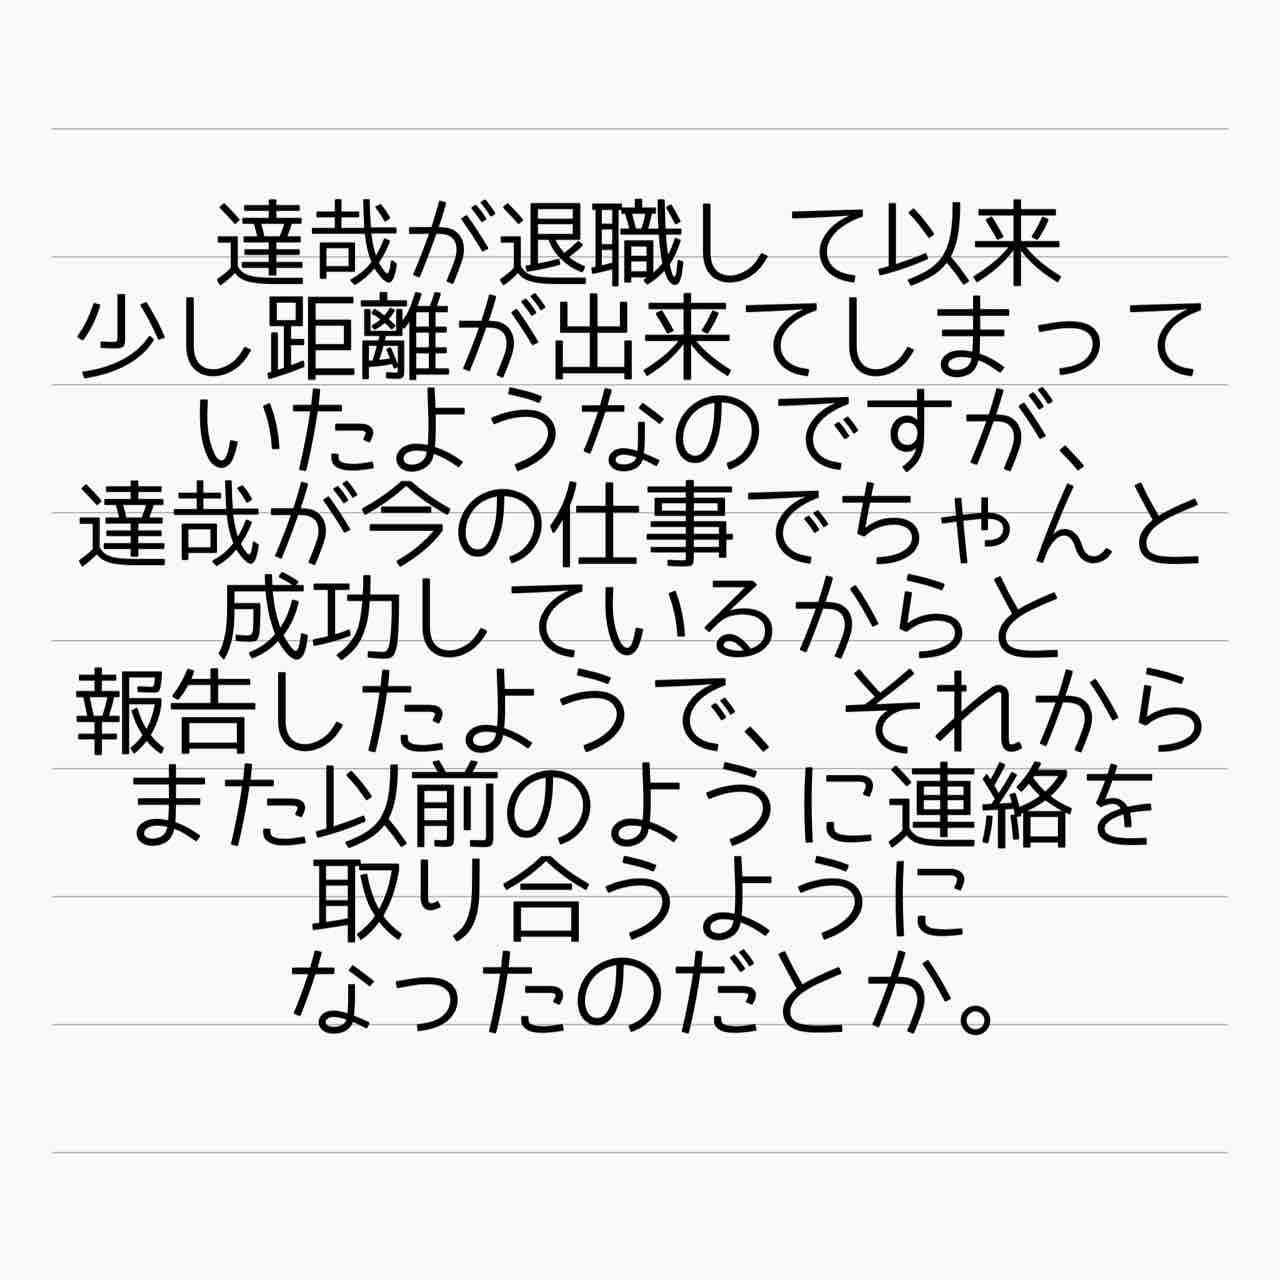 達哉が退職して以来
少し距離が出来てしまって
いたようなのですが、
達哉が今の仕事でちゃんと
成功しているからと
報告したようで、それから
また以前のように連絡を
取り合うように
なったのだとか。